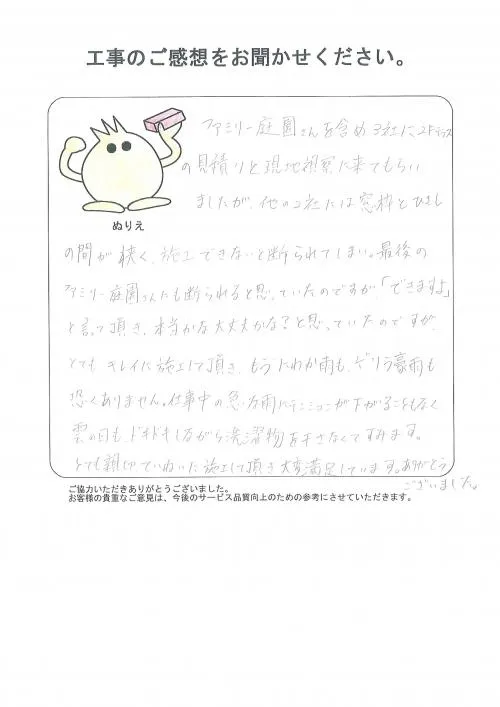 工事のご感想をお聞かせください。
ファミリー庭園さんを含め3社に、2Fテラス
の見積りと現地視察に来てもらい
ましたが、他の2社には窓枠とひさし
ぬりえ
の間が狭く、施工できないと断られてしまい。最後の
ファミリー庭園さんにも断られると思っていたのですが「できますよ」
と言って頂き、本当かな大丈夫かな?と思っていたのですが、
とても キレイに施工して頂き、もうにわか雨も、ゲリラ豪雨も
恐くありません。仕事中の急な雨にテンションが下がることもなく
雲の日も、ドキドキしながら洗濯物を干さなくてすみます。
とても親切ていねいに施工して頂き大変満足しています。ありがとう
ございました。
ご協力いただきありがとうございました。
お客様の貴重なご意見は、今後のサービス品質向上のための参考にさせていただきます。